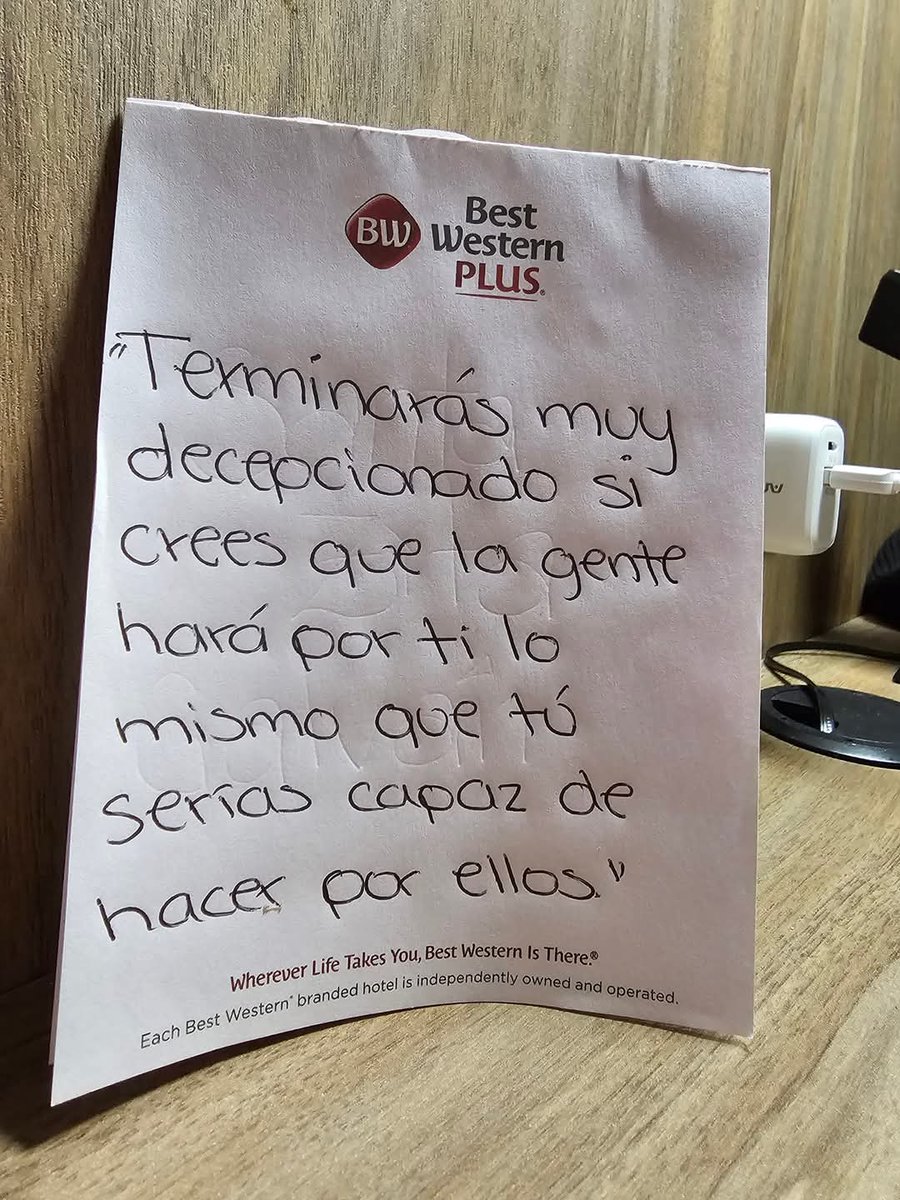 BW Best
Western
PLUS®
"Terminarás muy
decepcionado si
crees que la gente
hará por ti lo
mismo que tú
serías capaz de
hacer por ellos."
Wherever Life Takes You, Best Western Is There.®
Each Best Western® branded hotel is independently owned and operated.